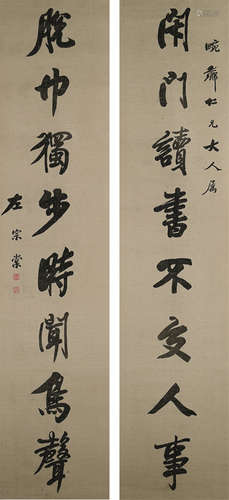 畹薌仁兄大人屬
閉門讀書不交人事
脫巾獨步時聞鳥聲
左宗棠